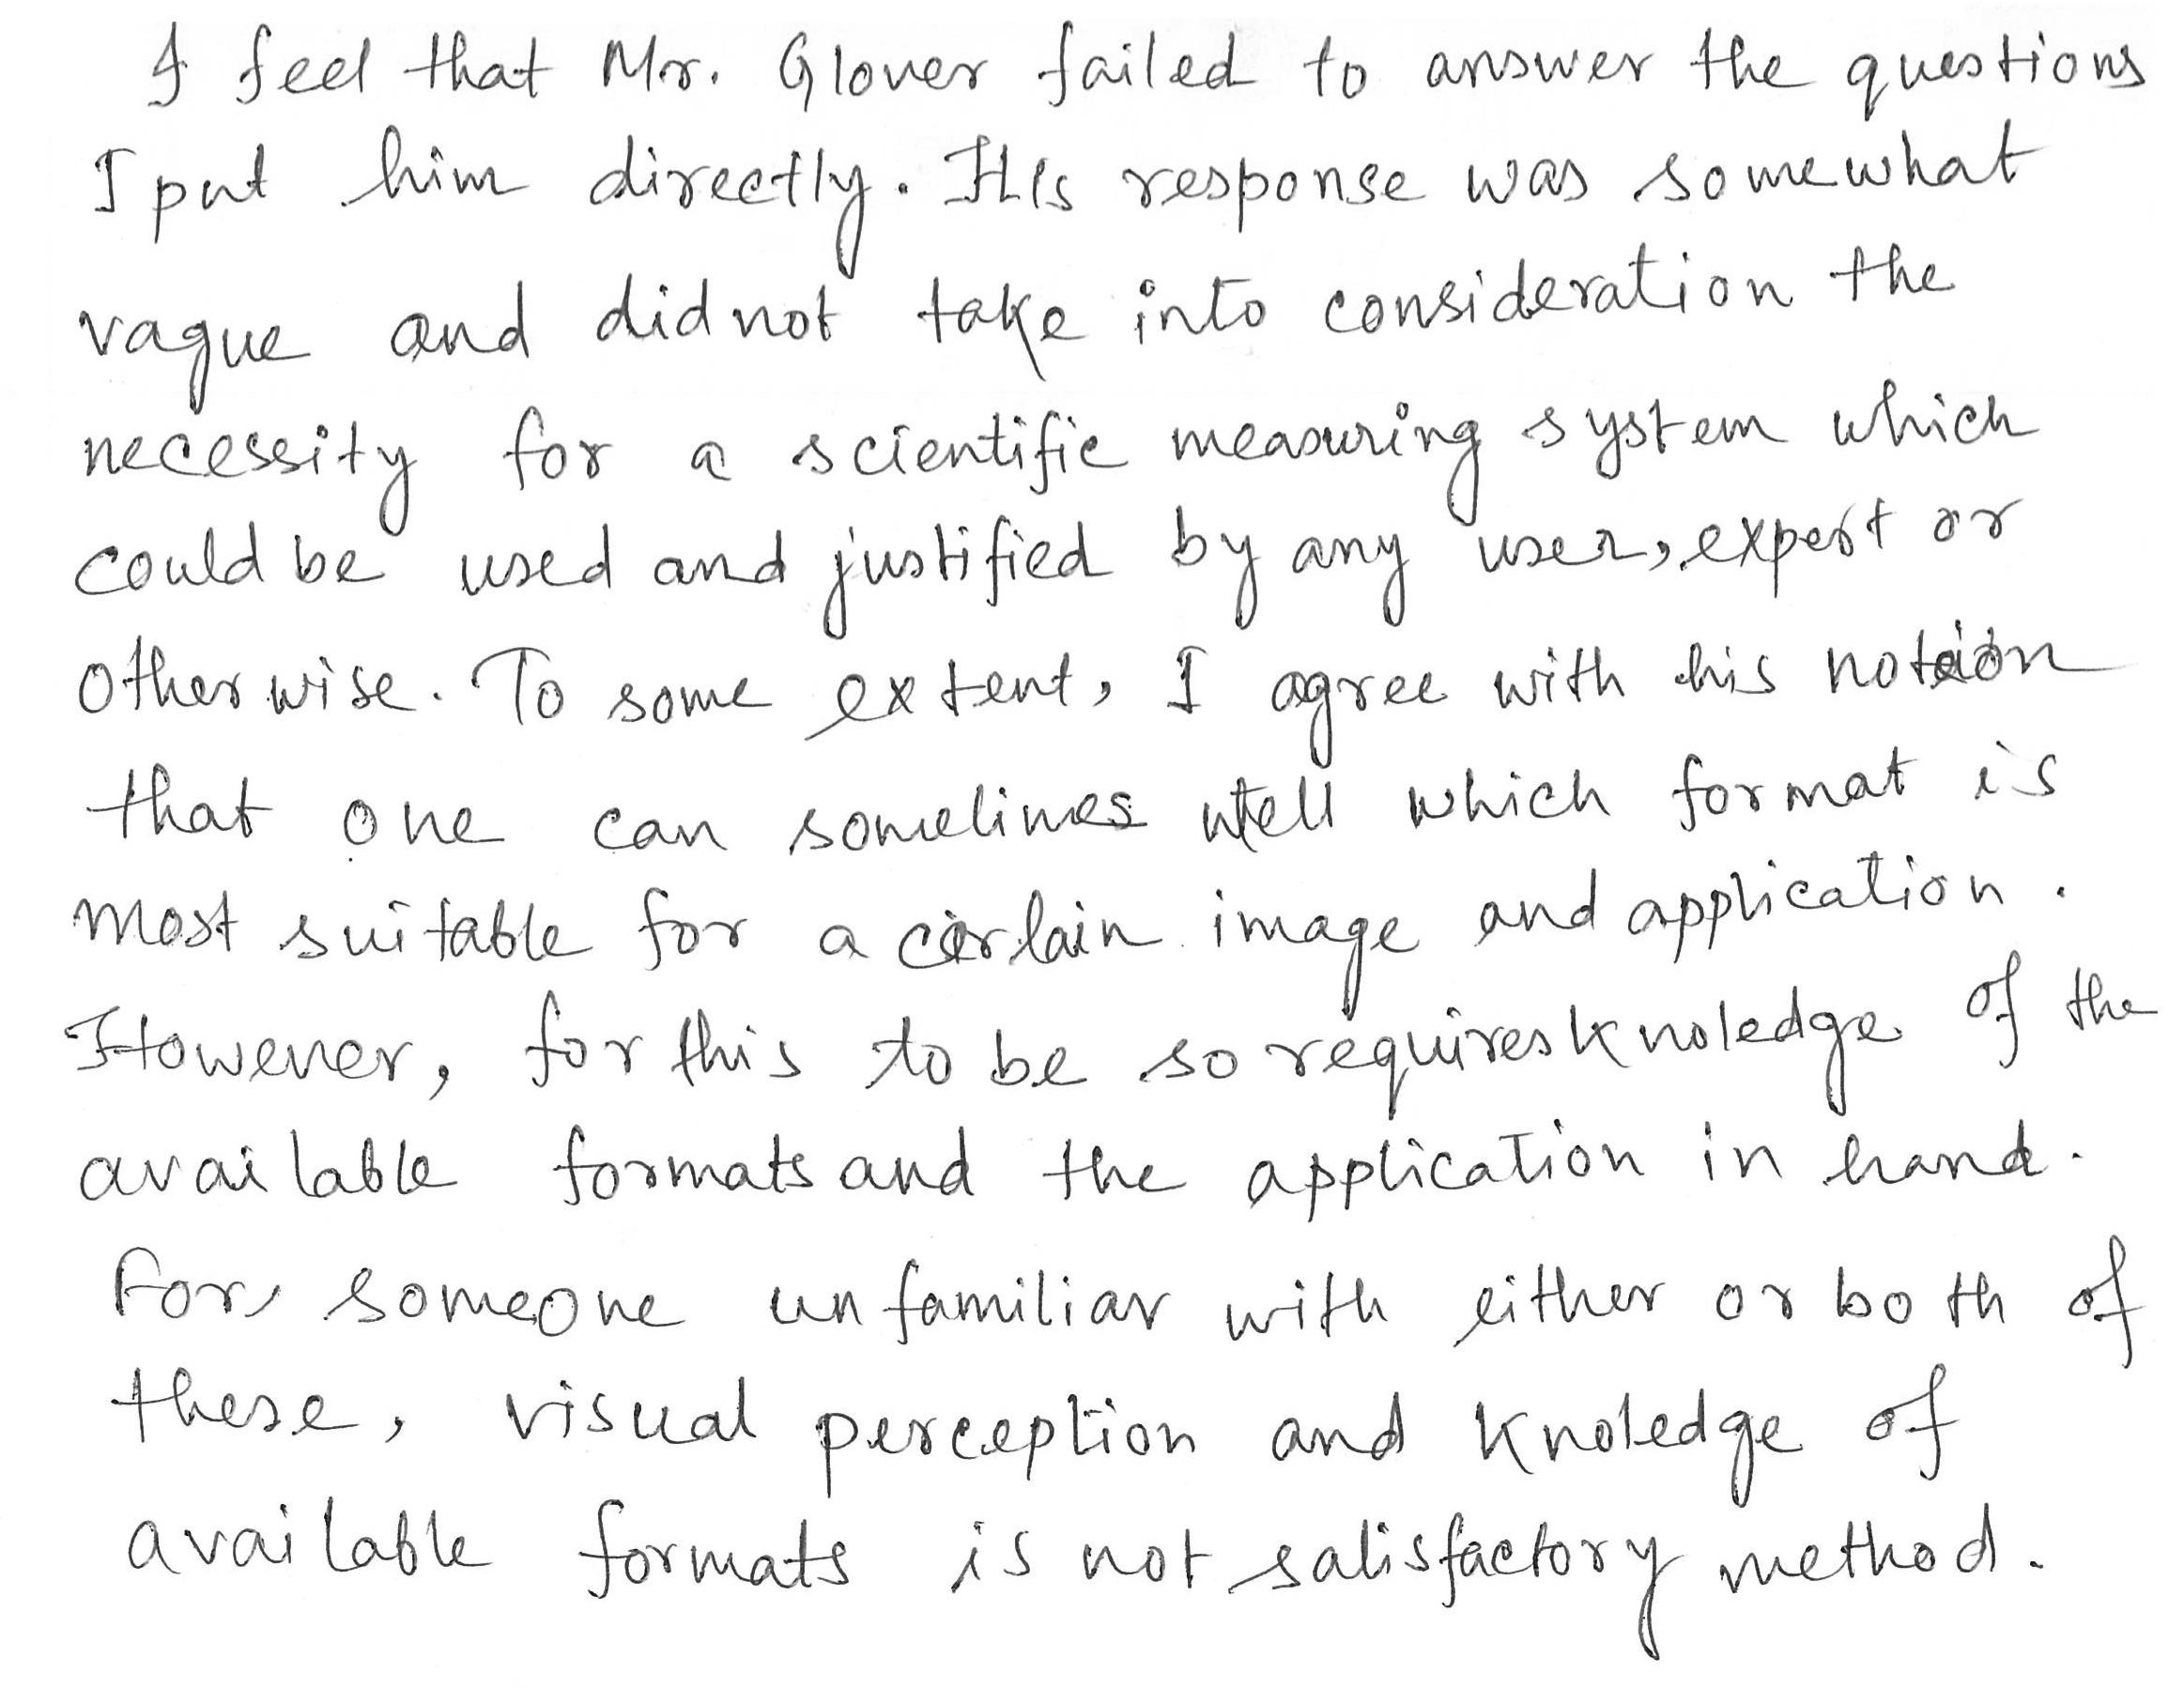 I feel that Mr. Glover failed to answer the questions
I put him directly. His response was somewhat
vague and did not take into consideration the
necessity for a scientific measuring system which
could be used and justified by any user, expert or
otherwise. To some extent, I agree with his notion
that one can sometimes tell which format is
most suitable for a certain image and application.
However, for this to be so requires knoledge of the
available formats and the application in hand.
For someone unfamiliar with either or both of
these, visual perception and knoledge of
available formats is not satisfactory method.